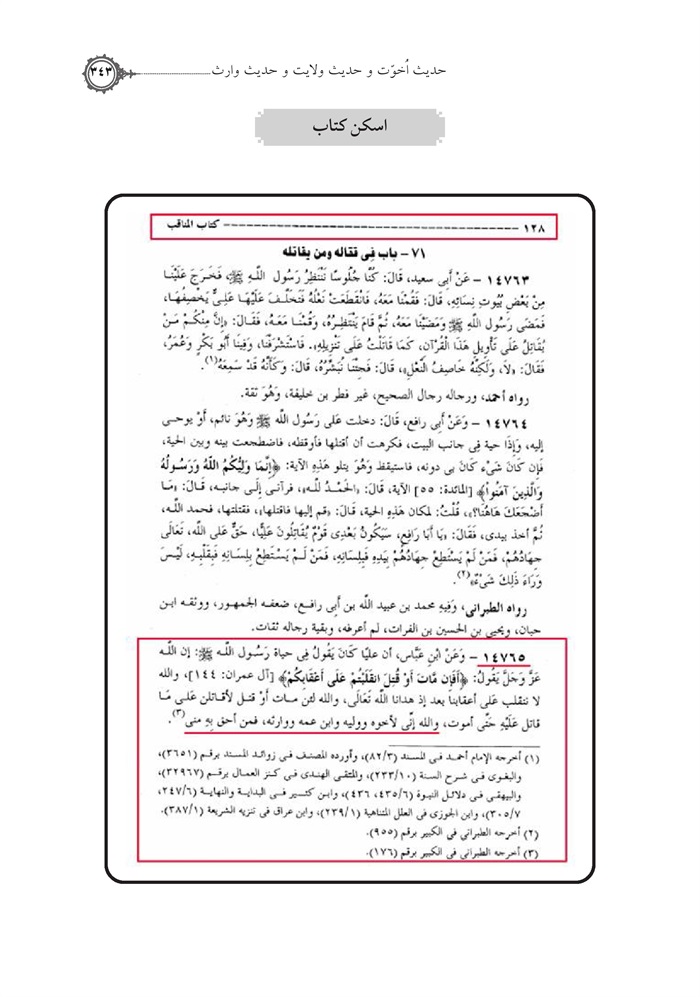 حدیث اُخوّت و حدیث ولایت و حدیث وارث
٣٤٣
اسکن کتاب
١٢٨ ــــــــــــــــــــــــــــــ كتاب المناقب
٧١ - باب فِي قتاله ومن يقاتله
١٤٧٦٣ - عَنْ أَبِى سعيد، قَالَ: كُنَّا جُلُوسًا نَنْتَظِرُ رَسُولَ اللَّهِ ﷺ، فَخَرَجَ عَلَيْنَا
مِنْ بَعْضِ بُيُوتِ نِسَائِهِ، قَالَ: فَقُمْنَا مَعَهُ، فَانْقَطَعَتْ نَعْلُهُ فَتَخَلَّفَ عَلَيْهَا عَلِىٌّ يَخْصِفُهَا،
فَمَضَى رَسُولُ اللَّهِ ﷺ وَمَضَيْنَا مَعَهُ، ثُمَّ قَامَ يَنْتَظِرُهُ، وَقُمْنَا مَعَهُ، فَقَالَ: «إِنَّ مِنْكُمْ مَنْ
يُقَاتِلُ عَلَى تَأْوِيلِ هَذَا الْقُرْآنِ، كَمَا قَاتَلْتُ عَلَى تَنْزِيلِهِ»، فَاسْتَشْرَفْنَا، وَفِينَا أَبُو بَكْرٍ وَعُمَرُ،
فَقَالَ: «لاَ، وَلَكِنَّهُ خَاصِفُ النَّعْلِ»، قَالَ: فَجِئْنَا نُبَشِّرُهُ، قَالَ: وَكَأَنَّهُ قَدْ سَمِعَهُ(١).
رواه أحمد، ورجاله رجال الصحيح، غير فطر بن خليفة، وَهُوَ ثقة.
١٤٧٦٤ - وَعَنْ أَبِى رافع، قَالَ: دخلت عَلى رَسُول اللَّه ﷺ وَهُوَ نائم، أَوْ يوحى
إليه، وَإِذَا حية فِى جانب البيت، فكرهت أن أقتلها فأوقظه، فاضطجعت بينه وبين الحية،
فإن كَانَ شَىْء كَانَ بى دونه، فاستيقظ وَهُوَ يتلو هَذِهِ الآية: ﴿إِنَّمَا وَلِيُّكُمُ اللَّهُ وَرَسُولُهُ
وَالَّذِينَ آمَنُوا﴾ [المائدة: ٥٥] الآية، قَالَ: «الْحَمْدُ للَّهِ»، فرآنى إِلَى جانبه، قَالَ: «مَا
أَضْجَعَكَ هَاهُنَا؟»، قُلْتُ: لمكان هَذِهِ الحية، قَالَ: «قم إليها فاقتلها»، فقتلتها، فحمد اللَّه،
ثُمَّ أخذ بيدى، فَقَالَ: «يَا أَبَا رَافِعٍ، سَيَكُونُ بَعْدِى قَوْمٌ يُقَاتِلُونَ عَلِيًّا، حَقٌّ عَلى اللَّه، تَعَالَى
جِهَادُهُمْ، فَمَنْ لَمْ يَسْتَطِعْ جِهَادُهُمْ بِيَدِهِ فَبِلِسَانِهِ، فَمَنْ لَمْ يَسْتَطِعْ بِلِسَانِهِ فَبِقَلْبِهِ، لَيْسَ
وَرَاءَ ذَلِكَ شَىْءٌ»(٢).
رواه الطبرانى، وَفِيهِ محمد بن عبيد اللَّه بن أَبِى رافع، ضعفه الجمهور، ووثقه ابن
حبان، ويحيى بن الحسين بن الفرات، لم أعرفه، وبقية رجاله ثقات.
١٤٧٦٥ - وَعَنْ ابْنِ عَبَّاس، أن عليًا كَانَ يَقُولُ فِى حياة رَسُولِ اللَّه ﷺ: إن اللَّه
عَزَّ وَجَلَّ يَقُولُ: ﴿أَفَإِن مَّاتَ أَوْ قُتِلَ انقَلَبْتُمْ عَلَى أَعْقَابِكُمْ﴾ [آل عمران: ١٤٤]، واللَّه
لا ننقلب عَلى أعقابنا بعد إذ هدانا اللَّه تَعَالَى، واللَّه لئن مات أَوْ قتل لأقاتلن عَلى مَا
قاتل عَلَيْهِ حَتَّى أموت، واللَّه إنّى لأخوه ووليه وابن عمه ووارثه، فمن أحق بِهِ منى(٣).
(١) أخرجه الإمام أحمد فى المسند (٨٢/٣)، وأورده المصنف فى زوائد المسند برقم (٣٦٥١)
والبغوى فى شرح السنة (٢٣٣/١٠)، والمتقى الهندى فى كنز العمال برقم (٣٢٩٦٧)،
والبيهقى فى دلائل النبوة (٤٣٥/٦، ٤٣٦)، وابن كثير فى البداية والنهاية (٢٤٧/٦،
٣٠٥/٧)، وابن الجوزى فى العلل المتناهية (٢٣٩/١)، وابن عراق فى تنزيه الشريعة (٣٨٧/١).
(٢) أخرجه الطبرانى فى الكبير برقم (٩٥٥).
(٣) أخرجه الطبرانى فى الكبير برقم (١٧٦).